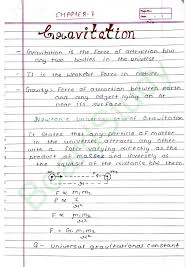 CHAPTER-7
Page No.
Date
Gravitation
- Gravitation is the force of attraction b/w
any two bodies in the universe
- It is the weakest force in nature
- Gravity:- Force of attraction between earth
and any object lying on or
near its surface.
Newton's Universal law of Gravitation
It states that any particle of matter
in the universe attracts any other
with a force varying directly as the
product of masses and inversely as
the square of the distance b/w them
F ∝ m₁m₂
F ∝ 1/r²
F ∝ m₁m₂/r²
G - Universal gravitational constant